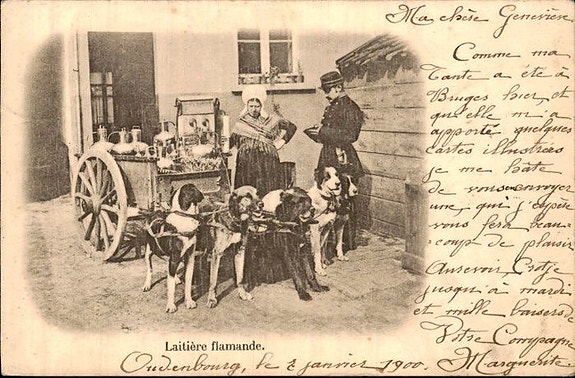 Ma chère Geneviève
Comme ma
Tante a été à
Bruges hier, et
qu'elle m'a
apporté quelques
cartes illustrées
je me hâte
de vous envoyer
une, qui j'espère
vous fera beau-
coup de plaisir
Aurevoir,
jusqu'à mardi
et mille baisers de
Votre Compagne
Marguerite.
Laitière flamande.
Oudenbourg, le 2 janvier 1900.